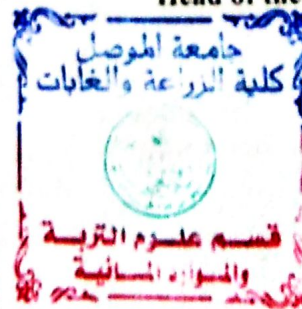 Head of the
جامعة الموصل
كلية الزراعة والغابات
قسم علوم التربة
والموارد المائية